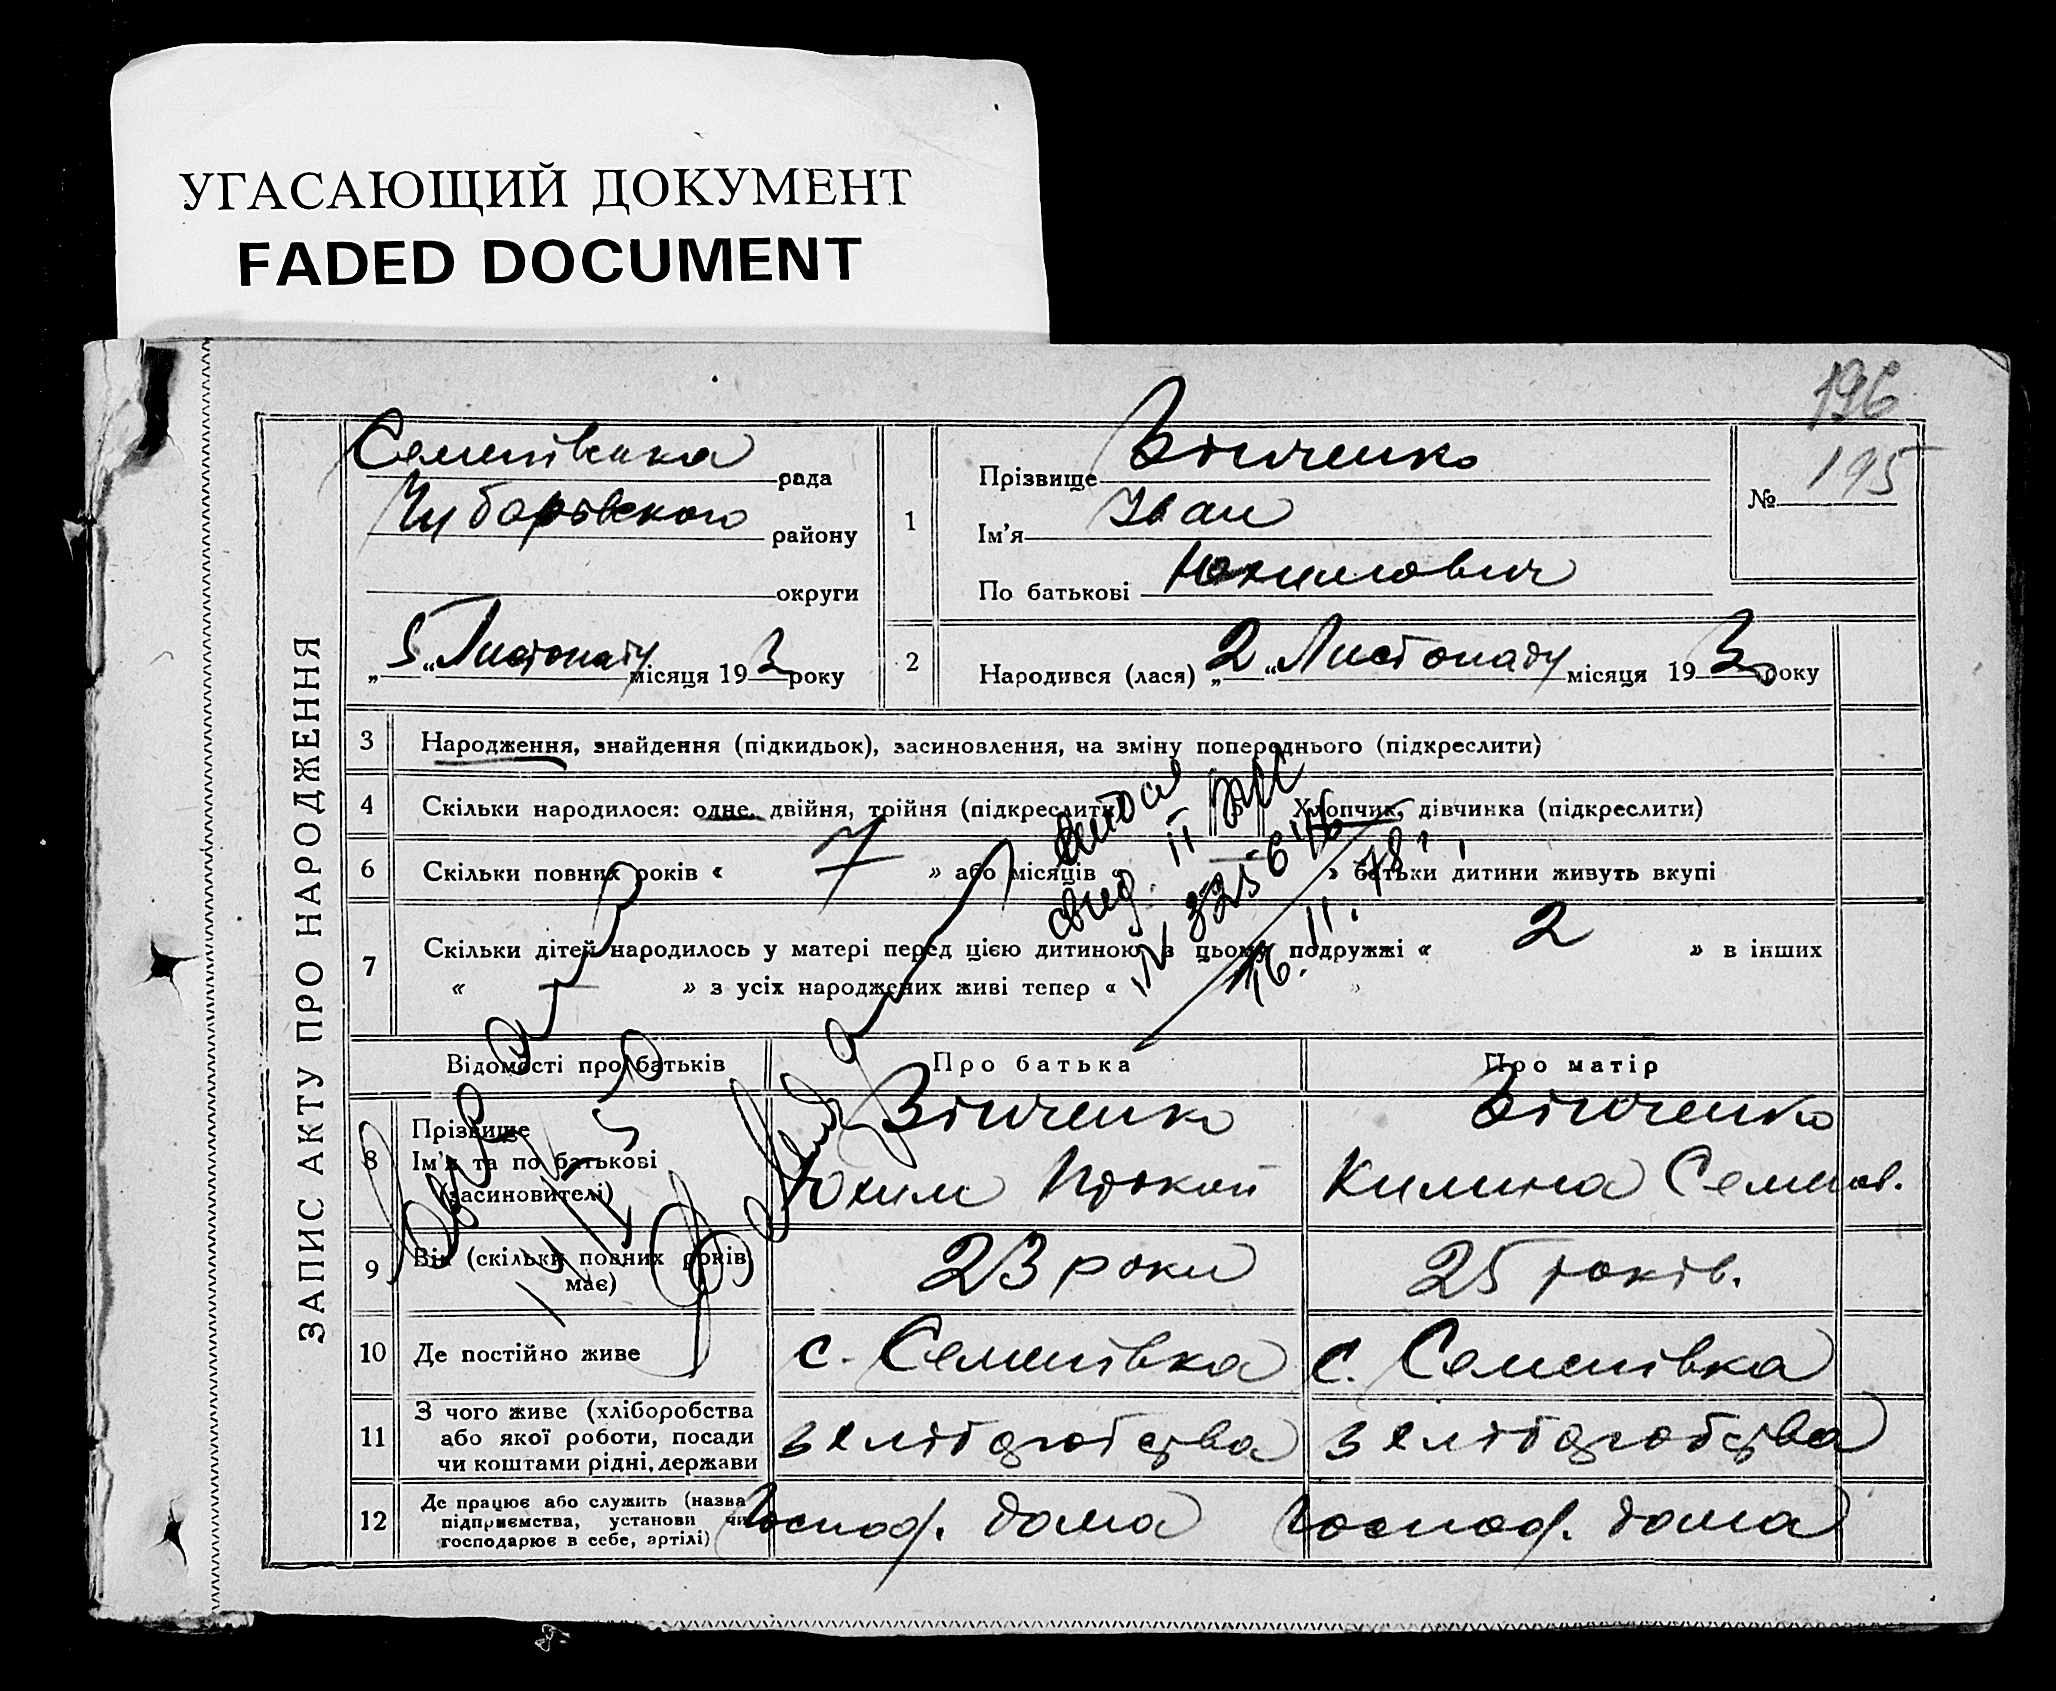 УГАСАЮЩИЙ ДОКУМЕНТ
FADED DOCUMENT
196
ЗАПИС АКТУ ПРО НАРОДЖЕННЯ
Семенівська рада
Чубарівського району
округи
„ 5 “ Листопаду місяця 193 року
1
Прізвище Зінченко
Ім'я Іван
По батькові Юхимович
№ 195
2 Народився (лася) „ 2 “ Листопаду місяця 193 року
3 Народження, знайдення (підкидьок), засиновлення, на зміну попереднього (підкреслити)
4 Скільки народилося: одне, двійня, трійня (підкреслити) 5 Хлопчик, дівчинка (підкреслити)
6 Скільки повних років « 7 » або місяців « » батьки дитини живуть вкупі
7 Скільки дітей народилось у матері перед цією дитиною з цьому подружжі « 2 » в інших
« — » з усіх народжених живі тепер « »
свид. II
№ 325676
16. 11. 78
Відомості про батьків Про батька Про матір
8 Прізвище
Ім'я та по батькові
(засиновителі)
Зінченко
Юхим Прокоп
Зінченко
Килина Семенов.
9 Вік (скільки повних років
має)
23 роки 25 років.
10 Де постійно живе с. Семенівка с. Семенівка
11 З чого живе (хліборобства
або якої роботи, посади
чи коштами рідні, держави
з хліборобства з хліборобства
12 Де працює або служить (назва
підприємства, установи чи
господарює в себе, артілі)
господ. дома господ. дома